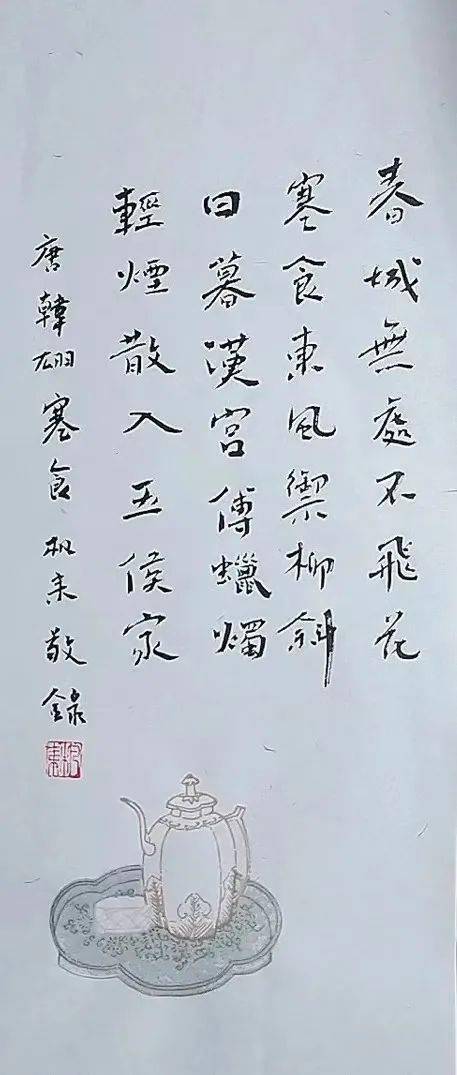 春城無處不飛花
寒食東風禦柳斜
日暮漢宮傅蠟燭
輕煙散入五侯家
唐韓翃寒食 敬錄